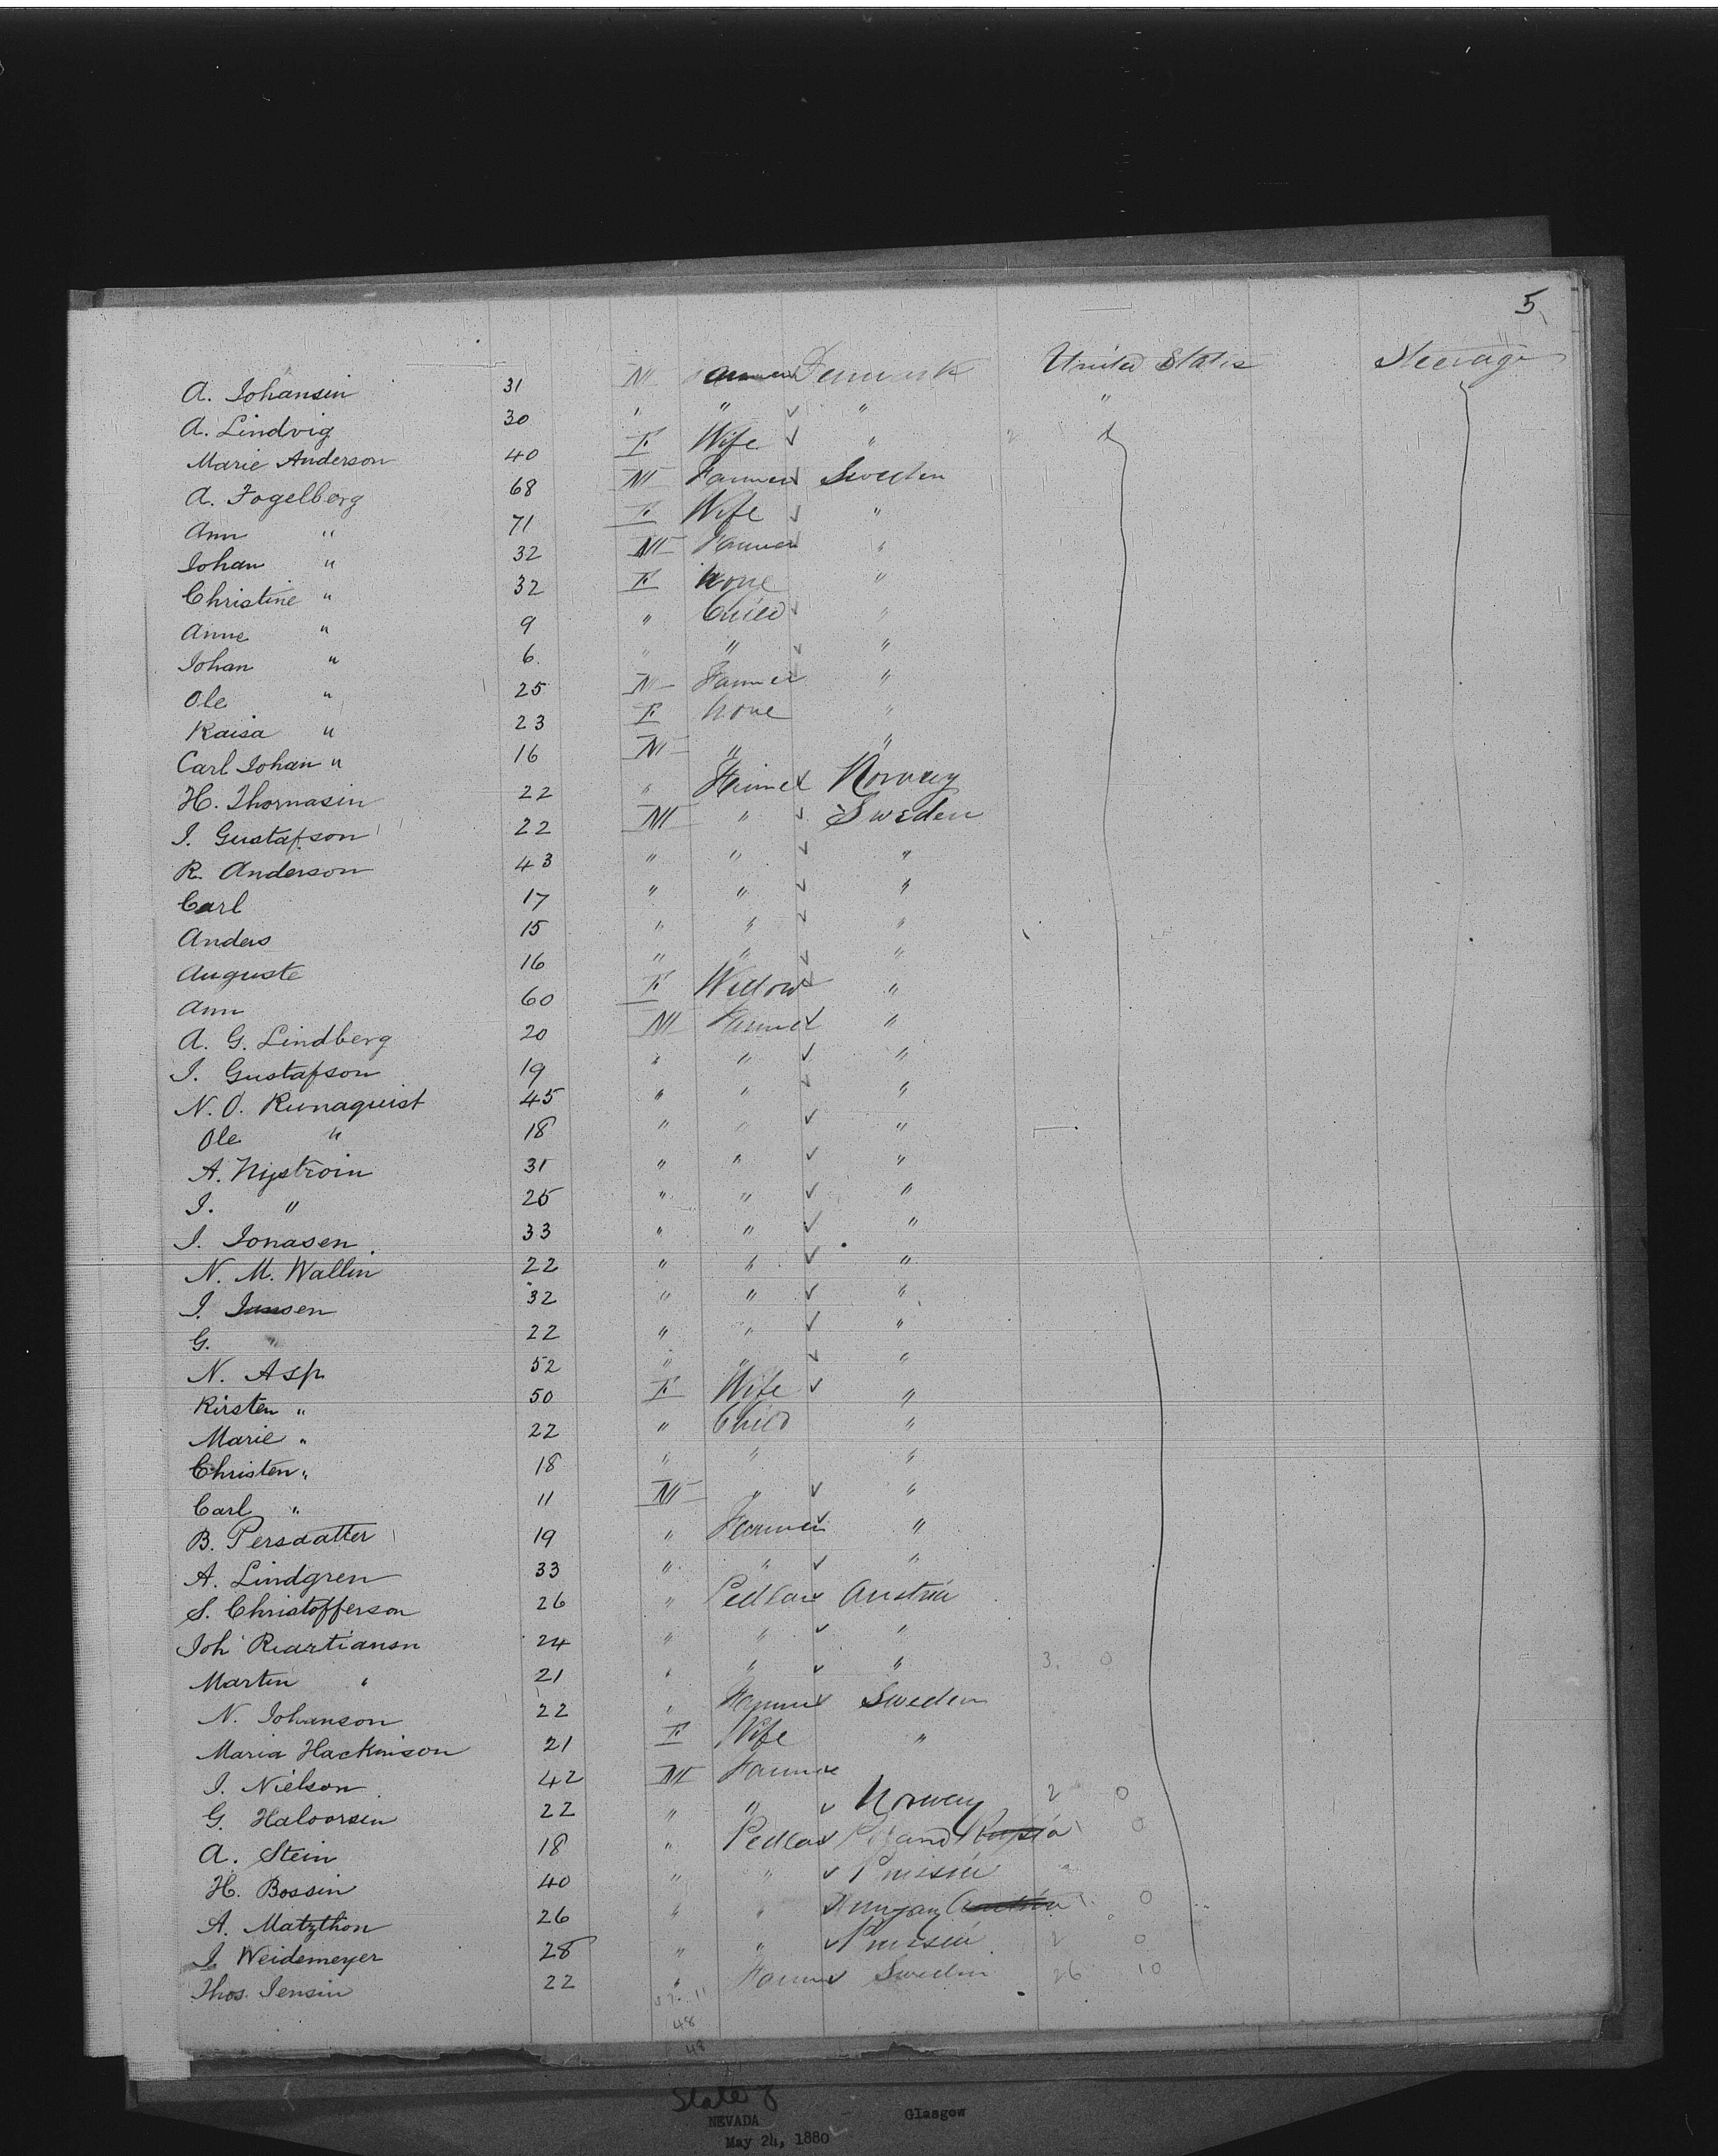 5
A. Johansin 31 M Farmer Denmark United States Steerage
A. Lindvig 30 " " ✓ " "
Marie Anderson 40 F Wife ✓ "
A. Fogelberg 68 M Farmer ✓ Sweden
Ann " 71 F Wife ✓ "
Johan " 32 M Farmer "
Christine " 32 F None "
Anne " 9 " Child ✓ "
Johan " 6 " " ✓ "
Ole " 25 M Farmer "
Kaisa " 23 F None "
Carl Johan " 16 M " "
H. Thomasin 22 " Farmer Norway
J. Gustafson 22 M " ✓ Sweden
R. Anderson 43 " " ✓ "
Carl 17 " " ✓ "
Anders 15 " " ✓ "
Auguste 16 " " ✓ "
Ann 60 F Widow "
A. G. Lindberg 20 M Farmer "
J. Gustafson 19 " " ✓ "
N. O. Runaquist 45 " " ✓ "
Ole " 18 " " ✓ "
A. Nystrom 31 " " ✓ "
J. " 25 " " ✓ "
J. Jonasen 33 " " ✓ "
N. M. Wallin 22 " " ✓ "
J. Jansen 32 " " ✓ "
G. " 22 " " ✓ "
N. Asp 52 " " ✓ "
Kirsten " 50 F Wife ✓ "
Marie " 22 " Child "
Christen " 18 " " "
Carl " 11 M " ✓ "
B. Persdatter 19 " Farmer "
A. Lindgren 33 " " ✓ "
S. Christofferson 26 " Pedlar Austria
Joh 24 " " ✓ "
Martin " 21 " " ✓ " 3. 0
N. Johanson 22 " Farmer Sweden
Maria Hackinson 21 F Wife "
J. Nielson 42 M Farmer
G. Halvorsen 22 " " ✓ Norway 2 0
A. Stein 18 " Pedlar Poland Russia 1 0
H. Bossin 40 " " ✓ Prussia
A. Matzthon 26 " " Hungary Austria 1. 0
J. Weidemeyer 28 " " ✓ Prussia 2 0
Thos. Jensin 22 " Farmer Sweden 26 10
37 11
48
48
State of
NEVADA Glasgow
May 24, 1880